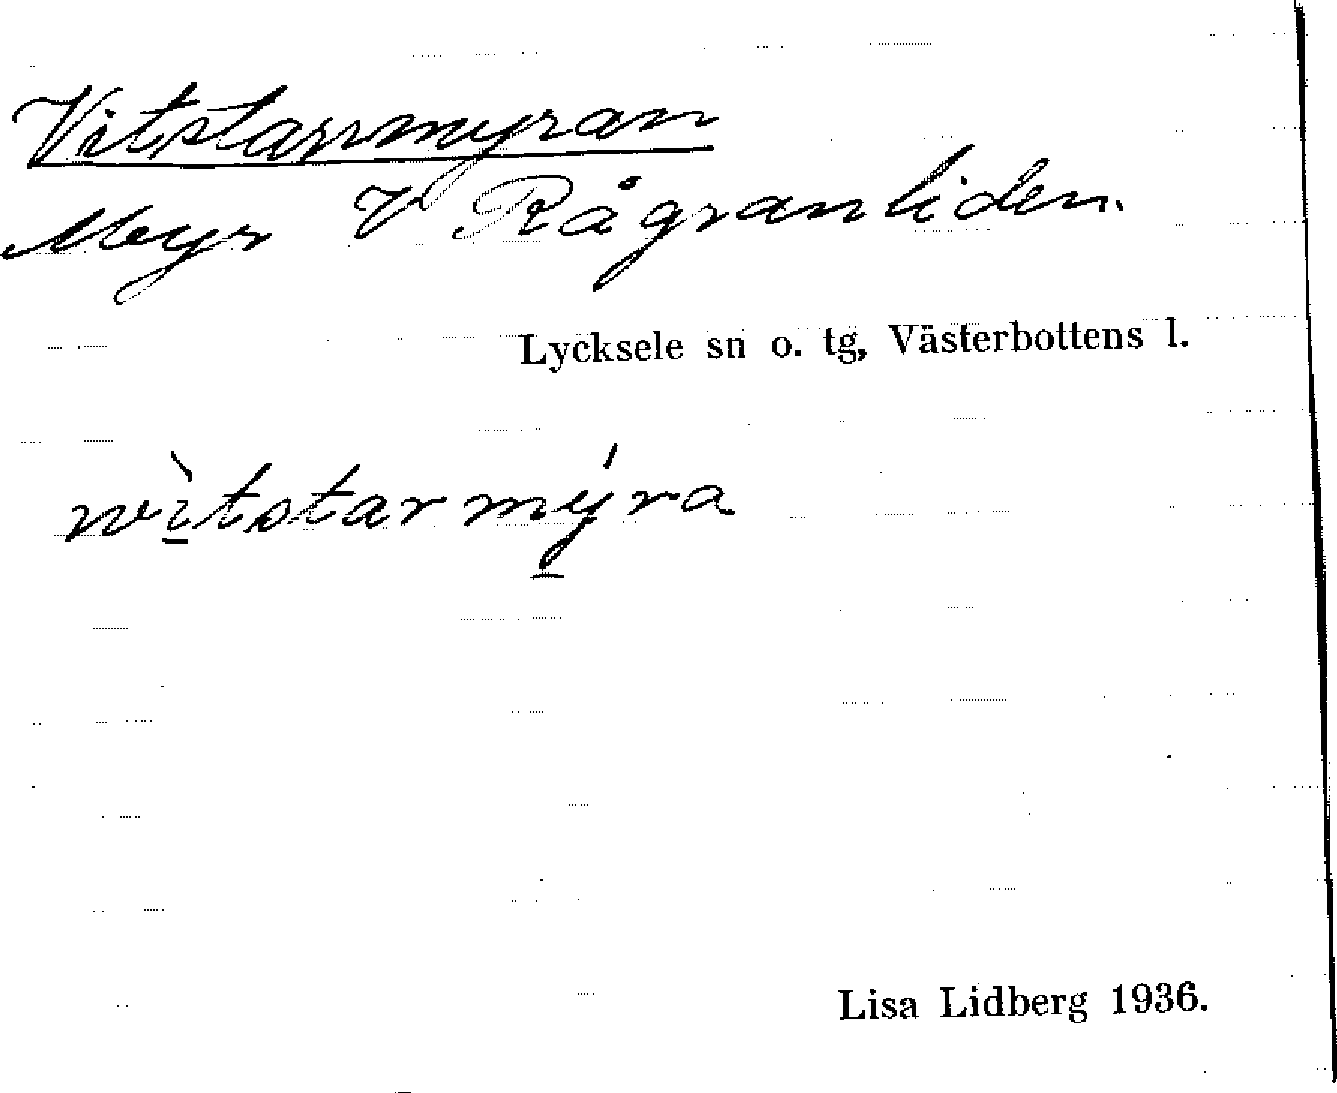 Vitstarrmyran
Myr V Rågranliden.
Lycksele sn o. tg, Västerbottens l.
wìtstarmýra
Lisa Lidberg 1936.